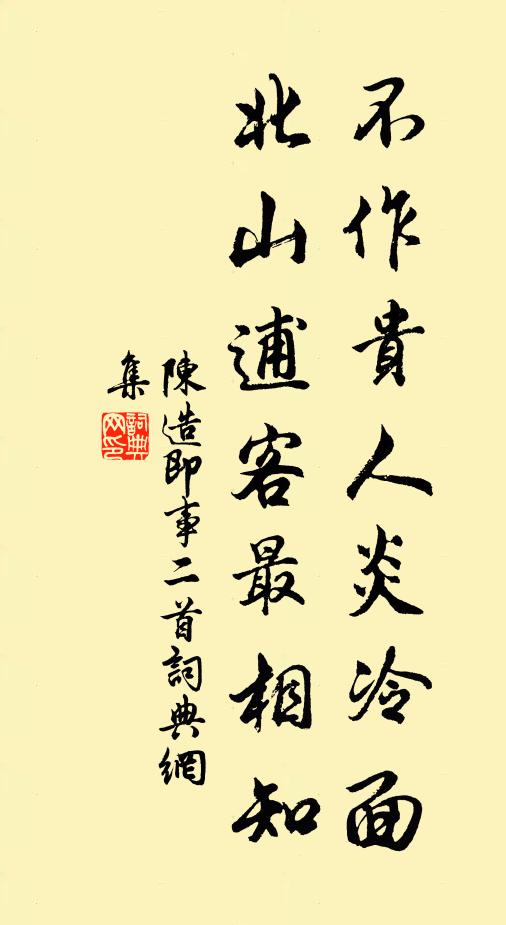 不作貴人炎冷面
北山逋客最相知
陳造即事二首詞典網
集
詞典網印